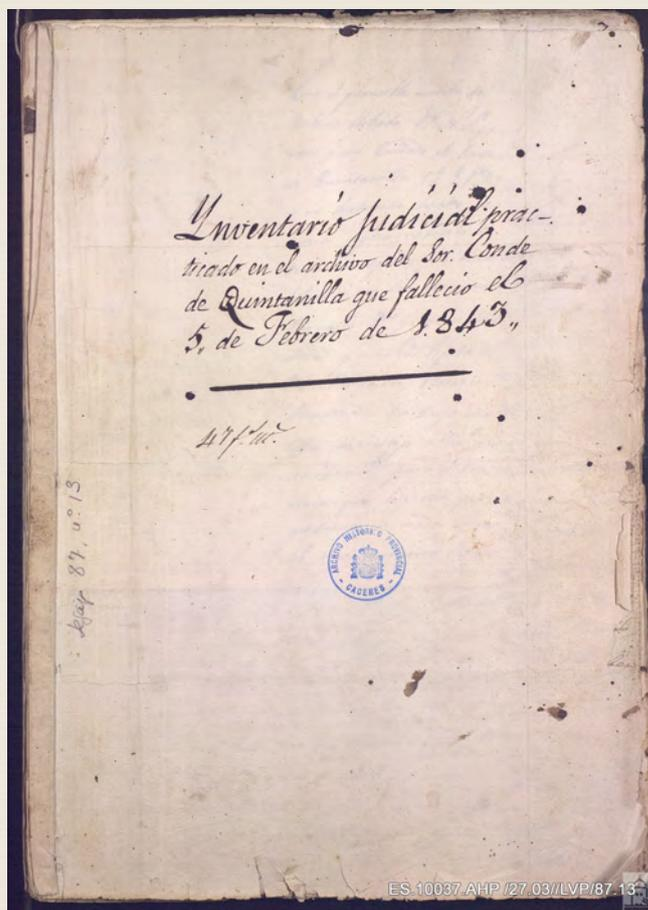 Ynventario Judicial prac-
ticado en el archivo del Sor. Conde
de Quintanilla que fallecio el
5,, de Febrero de 1.843,,
47 f.s
ARCHIVO HISTORICO PROVINCIAL
- CACERES -
Legajo 87, nº 13
ES-10037.AHP /27.03//LVP/87.13